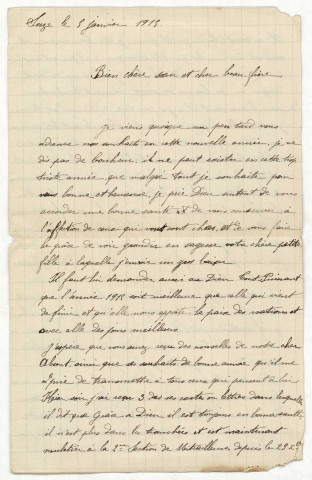 Suze le 5 janvier 1915
Bien chère sœur et cher beau-frère
je viens quoique un peu tard vous
adresser nos souhaits en cette nouvelle année, je ne
dis pas de bonheur il ne peut exister en cette trop
triste année que malgré tout je souhaite pour
vous bonne et heureuse, je prie Dieu autant de vous
accorder une bonne santé de vous conserver à
l'affection de ceux que vous sont chers, et de vous faire
la joie de voir grandir en sagesse votre chère petite
fille à laquelle j'envoie un gros baiser
Il faut lui demander aussi au Dieu Tout-Puissant
que l'année 1915 soit meilleure que celle qui vient
de finir et qu'elle nous apporte la paix des nations et
avec elle des jours meilleurs
J'espère que vous avez reçu des nouvelles de notre cher
Albert, ainsi que ses souhaits de bonne année qu'il me
prie de transmettre à tous ceux qui pensent à lui
Hier soir j'ai reçu 3 de ses cartes ou lettres dans lesquelles
il dit que Grâce à Dieu il est toujours en bonne santé,
il n'est plus dans les tranchées et est maintenant
à la 2me Section de Mitrailleuses depuis le 22 Xbre